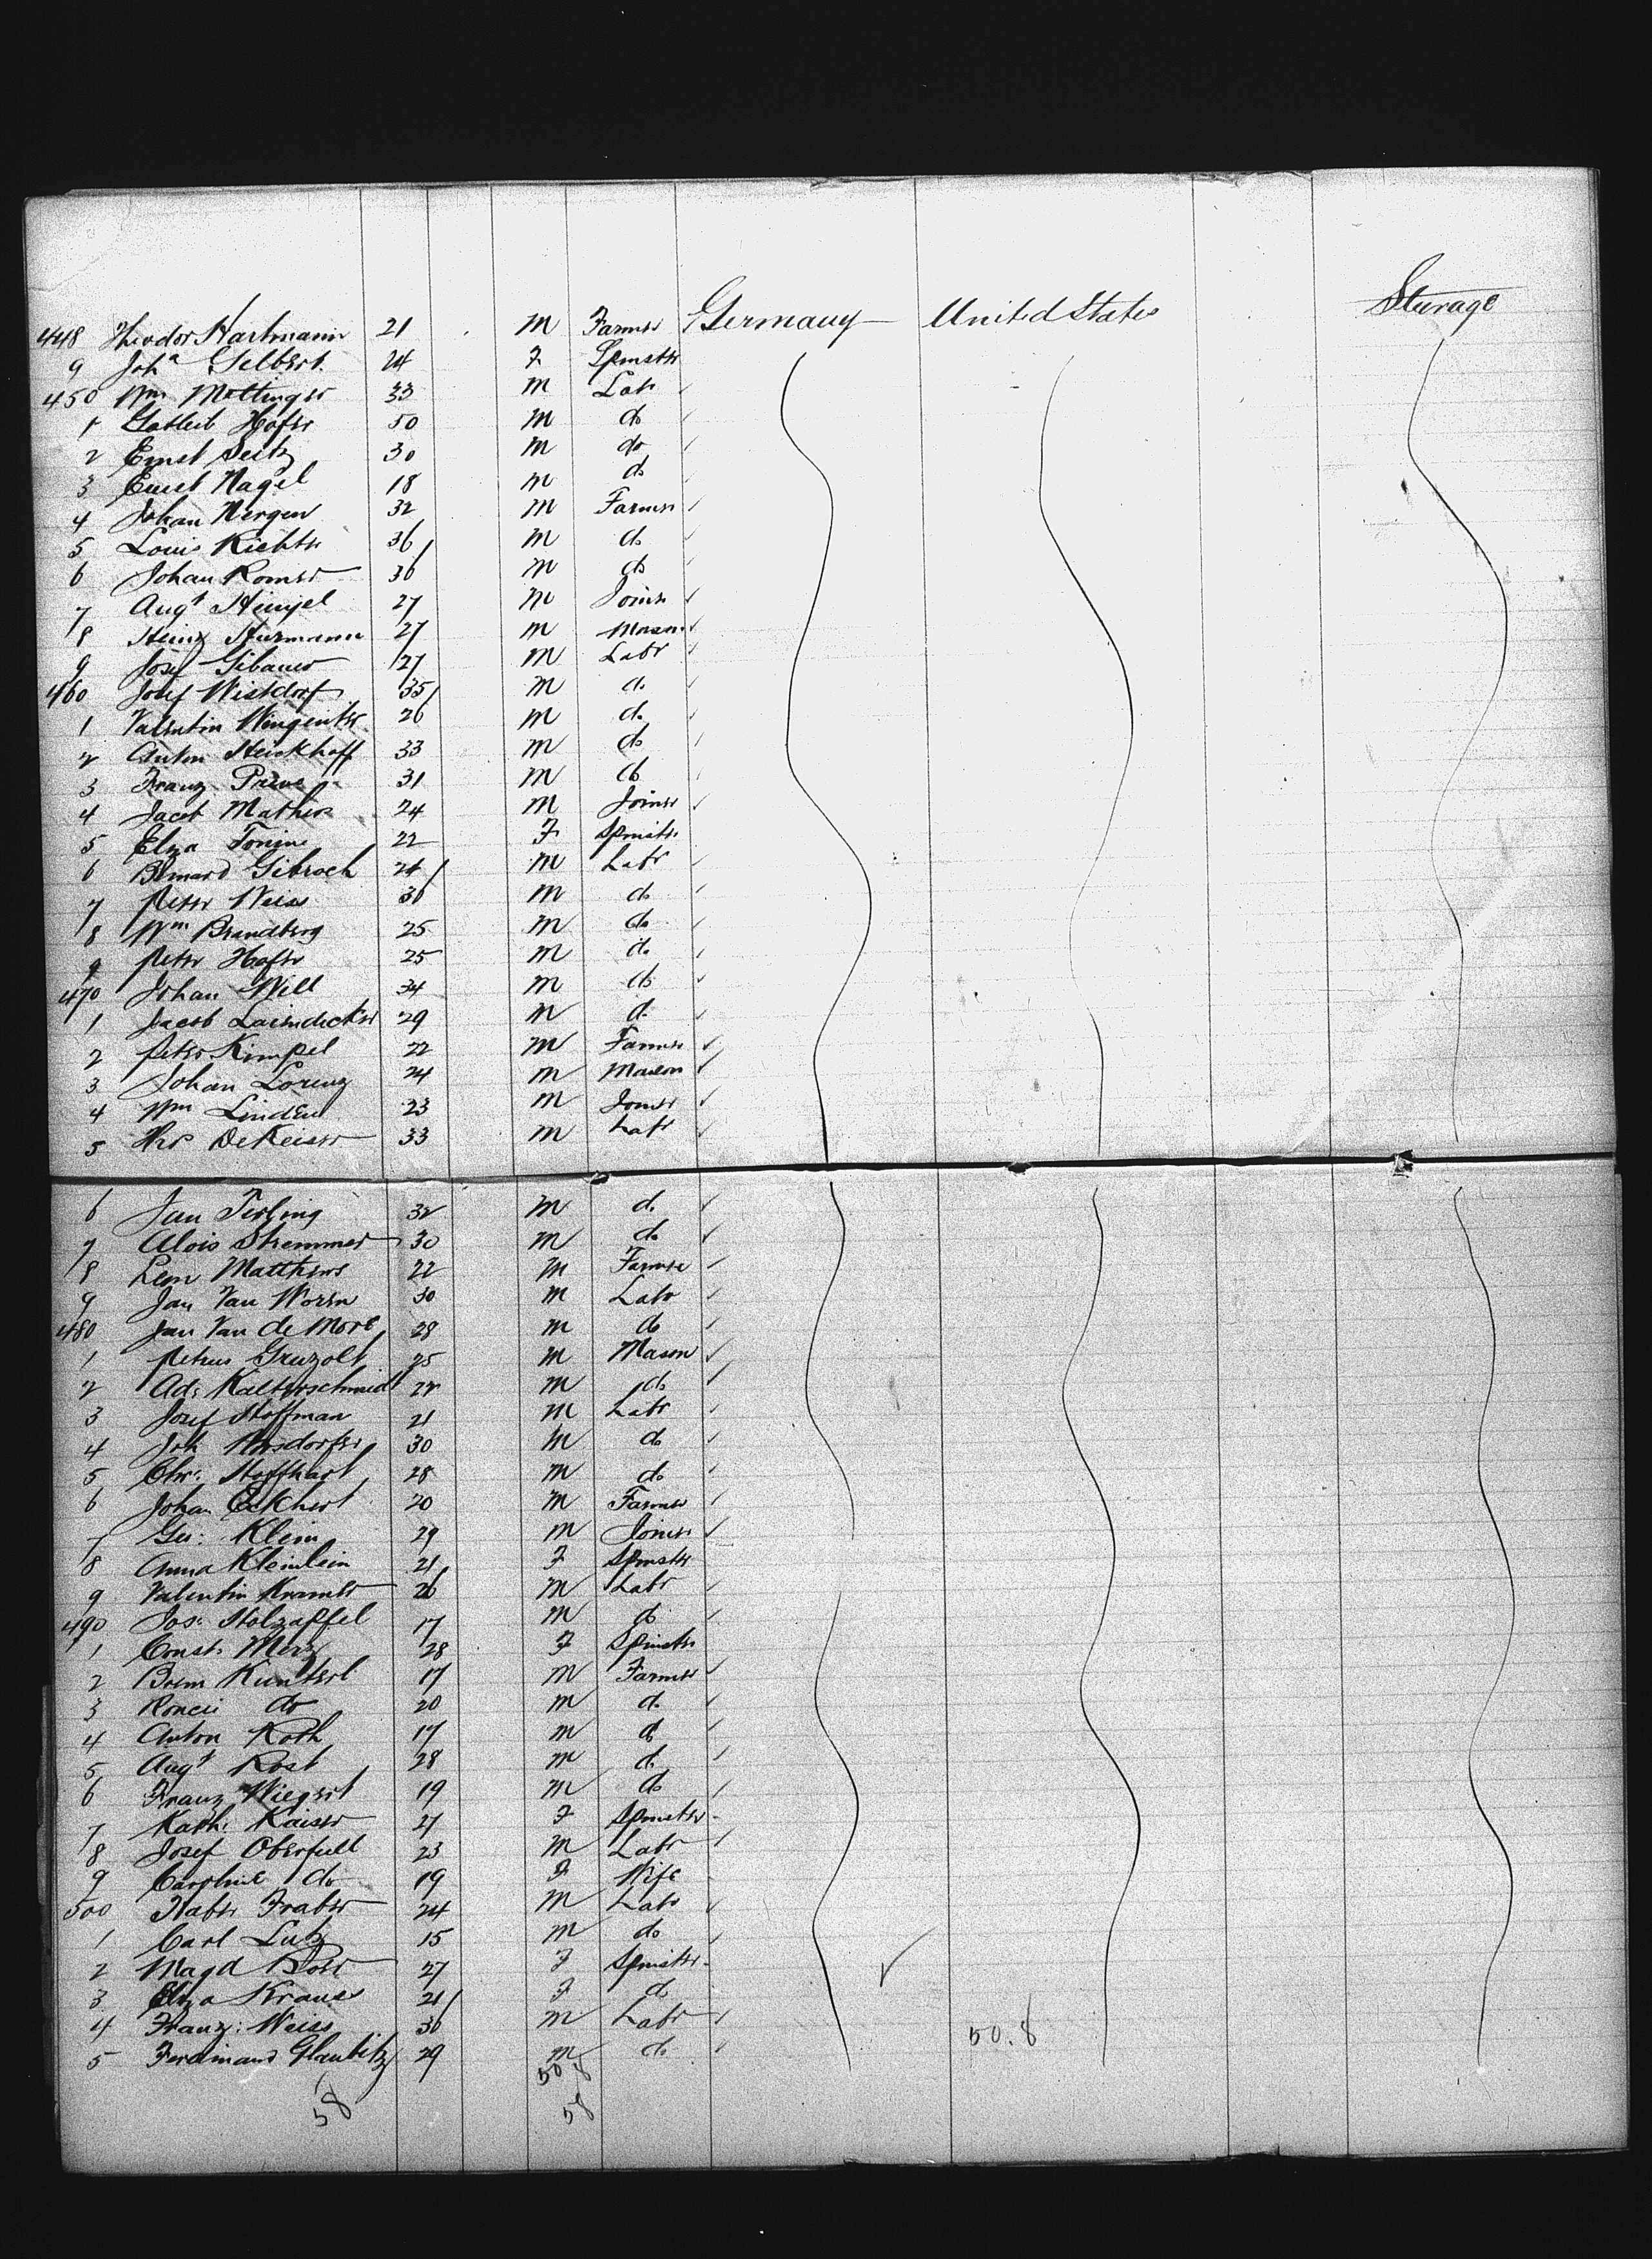 448 Theodor Hartmann 21 M Farmer Germany United States Sturage
9 Joha Gelbert 24 F Spinster
450 Wm Mettinger 33 M Labr
1 Gotleib Hofer 50 M do
2 Ernst Seitz 30 M do
3 Ernst Nagel 18 M do
4 Johan Nergen 32 M Farmer
5 Louis Richter 36 M do
6 Johan Romer 36 M do
7 Augt Heinzel 27 M Joiner
8 Heinz Hurmann 27 M Mason
9 Josef Gibauer 27 M Labr
460 Josef Wistdorf 35 M do
1 Valentin Wingenter 26 M do
2 Anton Steickhoff 33 M do
3 Franz 31 M do
4 Jacob Mather 24 M Joiner
5 Elza Tonine 22 F Spinster
6 Bernard Gibroch 24 M Labr
7 Peter Weiss 30 M do
8 Wm Brandberg 25 M do
9 Peter Hofer 25 M do
470 Johan Will 34 M do
1 Jacob 29 M do
2 Peter Kimpel 22 M Farmer
3 Johan Lorenz 24 M Mason
4 Wm Linden 23 M Joiner
5 DeKeiser 33 M Labr
6 Jan Terling 32 M do
7 Alois Stremmer 30 M do
8 Leon Matthews 22 M Farmer
9 Jan Van Woren 30 M Labr
480 Jan Van de More 28 M do
1 Petrus Gruzolt 25 M Mason
2 Ad: Kalterschmidt 22 M do
3 Josef Hoffman 21 M Labr
4 Joh 30 M do
5 Chr: Hoffhart 28 M do
6 Johan Eckhert 20 M Farmer
7 Ge: Klein 29 M Joiner
8 Anna Kleinlein 21 F Spinster
9 Valentin Kramer 26 M Labr
490 Jos: Holzapfel 17 M do
1 Const: Merz 28 F Spinster
2 Kunterl 17 M Farmer
3 do 20 M do
4 Anton Roth 17 M do
5 Augt Rost 28 M do
6 Franz Wiegert 19 M do
7 Kath: Kaiser 27 F Spinster
8 Josef Oberfull 23 M Labr
9 Caroline do 19 F Wife
500 Frater 24 M Labr
1 Carl Lutz 15 M do
2 Magd Roser 27 F Spinster
3 Elza Kraus 21 F do
4 Franz: Weiss 36 M Labr
5 Ferdinand Glaubitz 29 M do
50.8
50 8
58 58